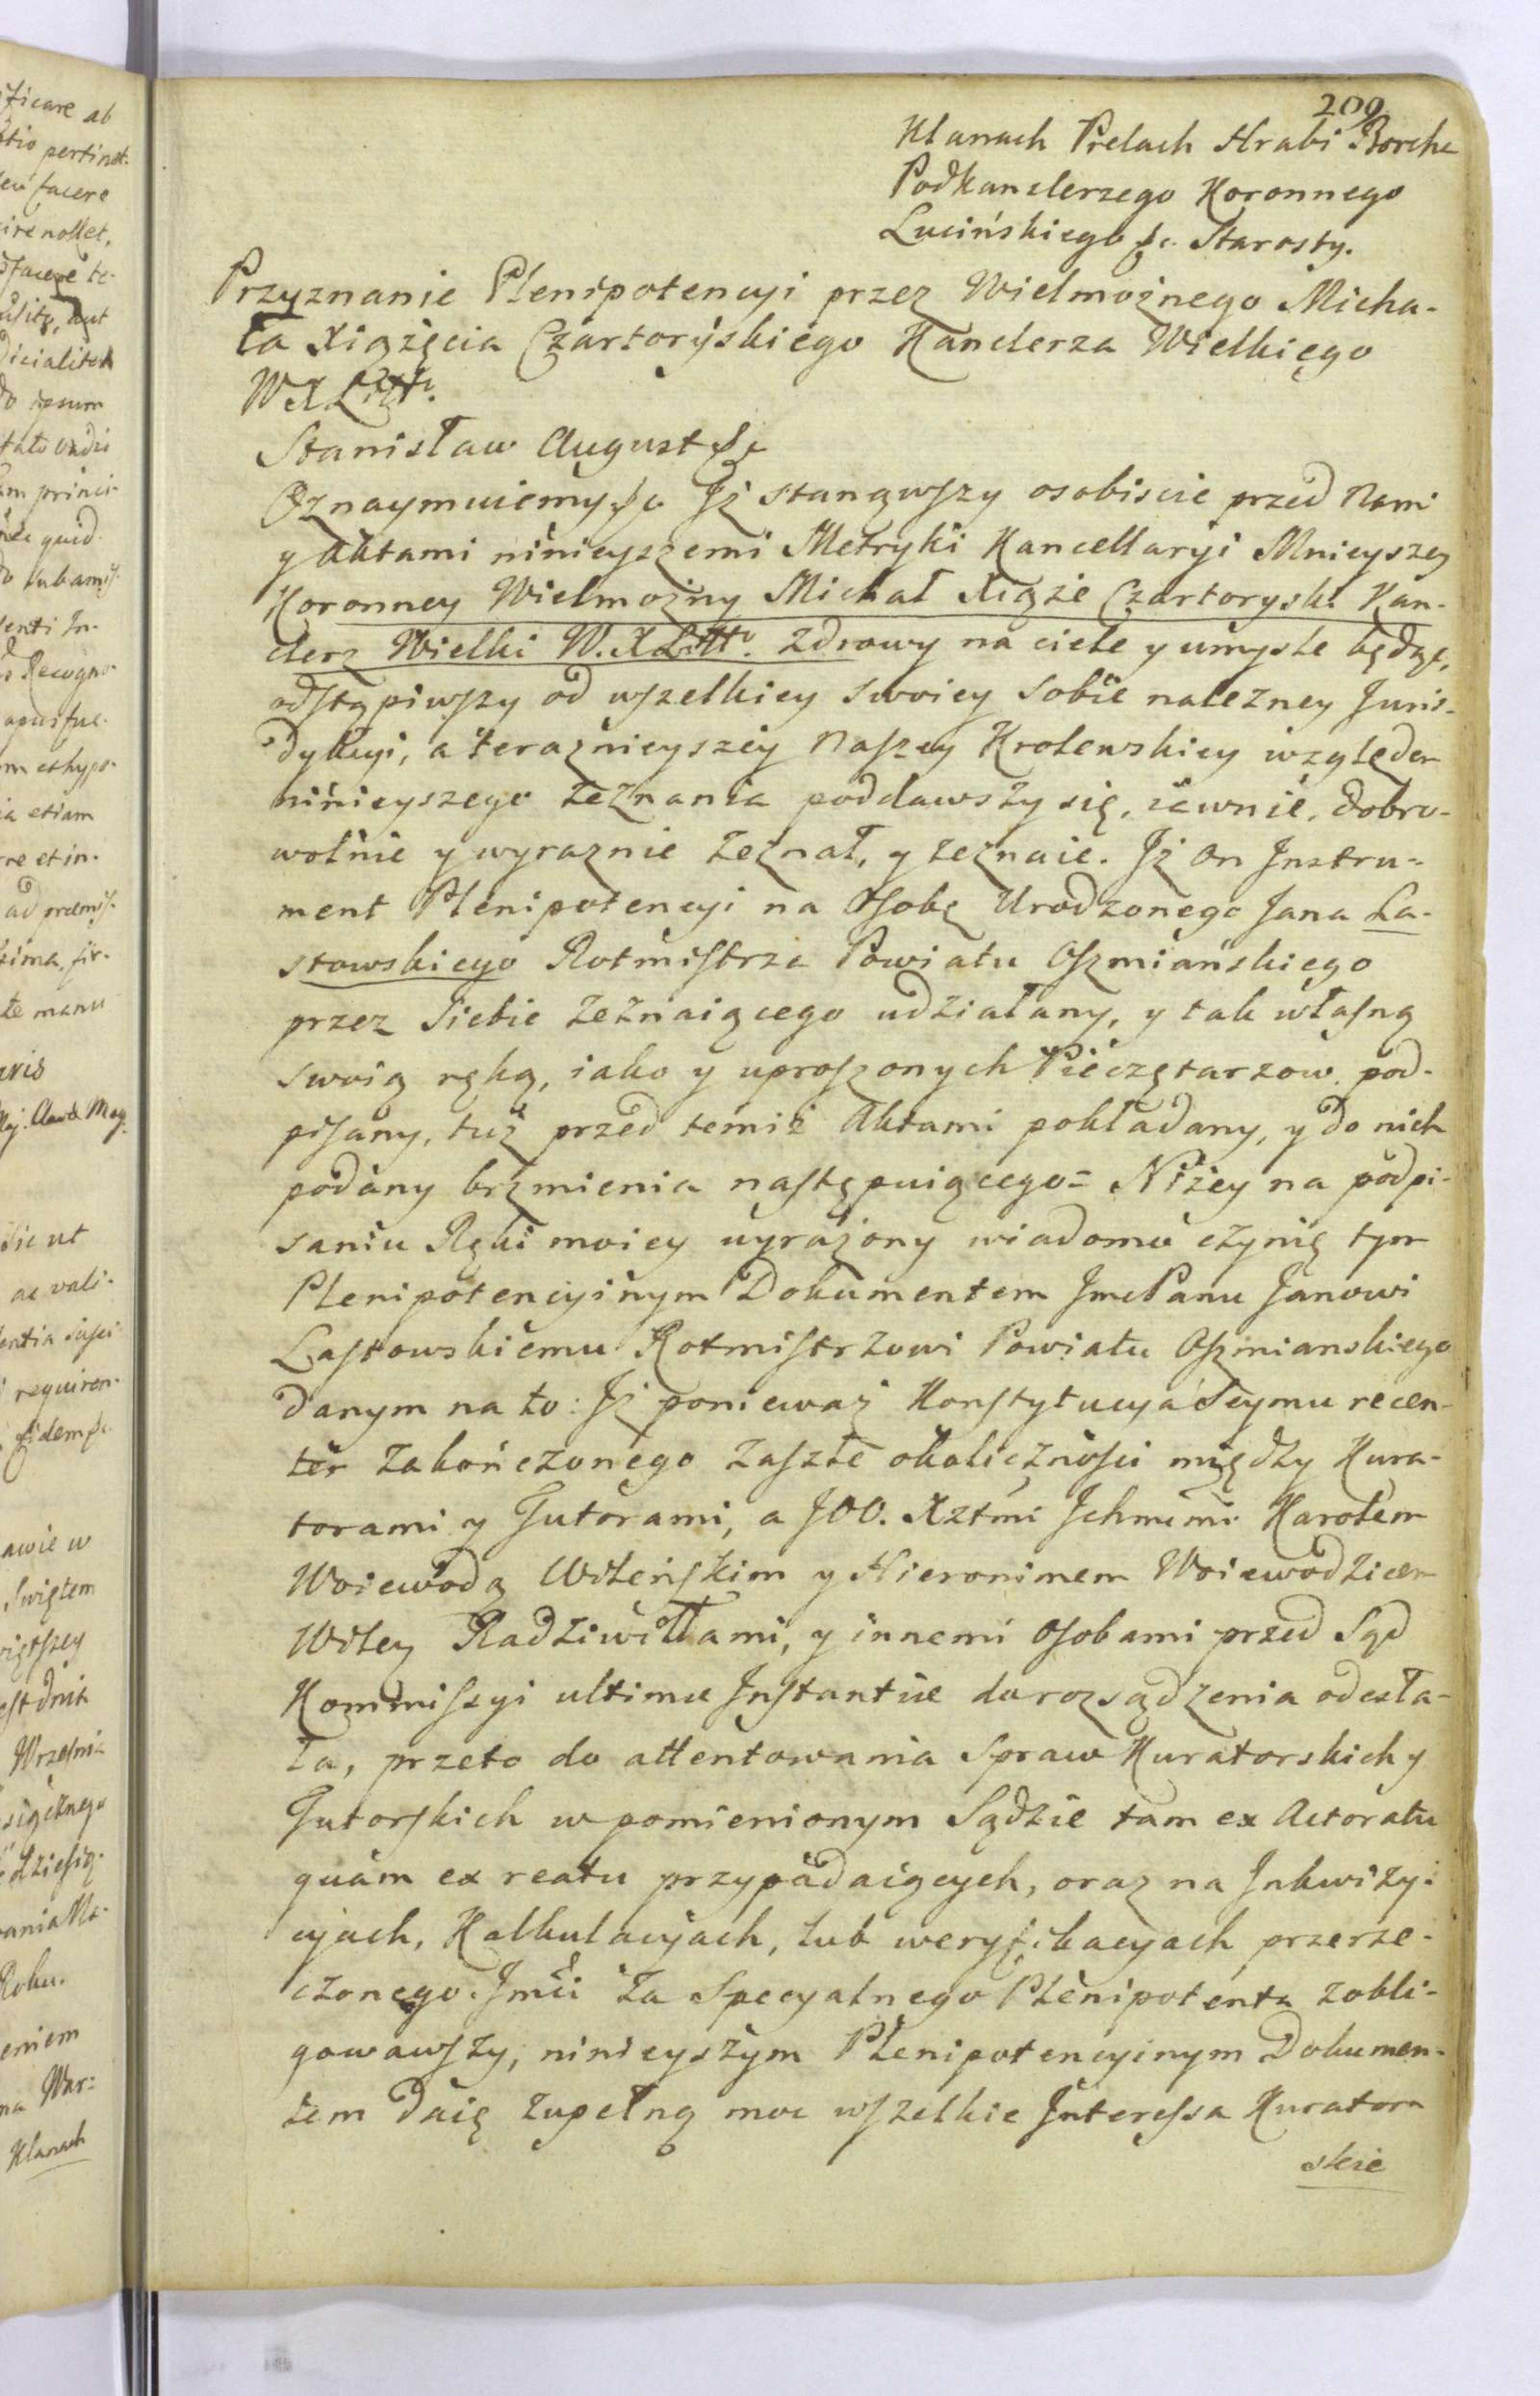 209
Klanach Prelach Hrabi Borcha
Podkanclerzego Koronnego
Lucińskiego &c. Starosty.
Przyznanie Plenipotencyi przez Wielmożnego Micha-
ła Xiążęcia Czartoryskiego Kanclerza Wielkiego
W X Littº.
Stanisław August &c
Oznaymuiemy &c. Jż stanąwszy osobiscie przed Nami
y Aktami ninieyszemi Metryki Kancellaryi Mnieyszey
Koronney Wielmożny Michał Xiąże Czartoryski Kan-
clerz Wielki W. X Littº. zdrowy na ciele y umyśle będąc,
odstąpiwszy od wszelkiey swoiey sobie nalezney Juris-
dykcyi, a teraznieyszey Naszey Krolewskiey względem
ninieyszego zeznania poddawszy się, iawnie, dobro-
wolnie y wyraznie zeznał, y zeznaie. Jż on Jnstru-
ment Plenipotencyi na Osobę Urodzonego Jana La-
stowskiego Rotmistrza Powiatu Oszmiańskiego
przez siebie zeznaiącego udziałany, y tak własną
swoią ręką, iako y uproszonych Pieczętarzow pod-
pisany, tuż przed temiż Aktami pokładany, y do nich
podany brzmienia następuiącego = Niżey na podpi-
saniu Ręki moiey wyrażony wiadomo czynię tym
Plenipotencyinym Dokumentem JmcPanu Janowi
Lastowskiemu Rotmistrzowi Powiatu Oszmianskiego
danym na to: Jż ponieważ Konstytucya Seymu recen-
ter zakończonego zaszłe okoliczności między Kura-
torami y Tutorami, a JOO. Xztmi Jchmcmi Karolem
Woiewodą Wileńskim y Hieronimem Woiewodzicem
Wiley Radziwiłłami, y innemi osobami przed Sąd
Kommissyi ultimæ Jnstantiæ do rozsądzenia odesła-
ła, przeto do attentowania Spraw Kuratorskich y
Tutorskich w pomienionym Sądzie tam ex Actoratu
quam ex reatu przypadaiących, oraz na Jnkwizy-
cyach, Kalkulacyach, lub weryfikacyach przerze-
czonego Jmci za Specyalnego Plenipotenta zobli-
gowawszy, ninieyszym Plenipotencyinym Dokumen-
tem daię zupełną moc wszelkie Jnteressa Kurator
skie